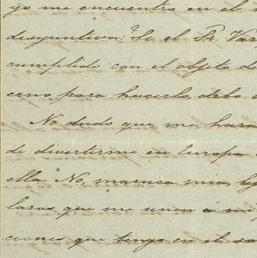 yo me encuentro en el
disyuntiva: "Si el Sr. Var
cumplido con el objeto d
erno para hacerlo, debo
No dudo que me hara
de divertirme en Europa
ella. No, maruca mia,
laros que me unen á mi
ciones que tengo en el